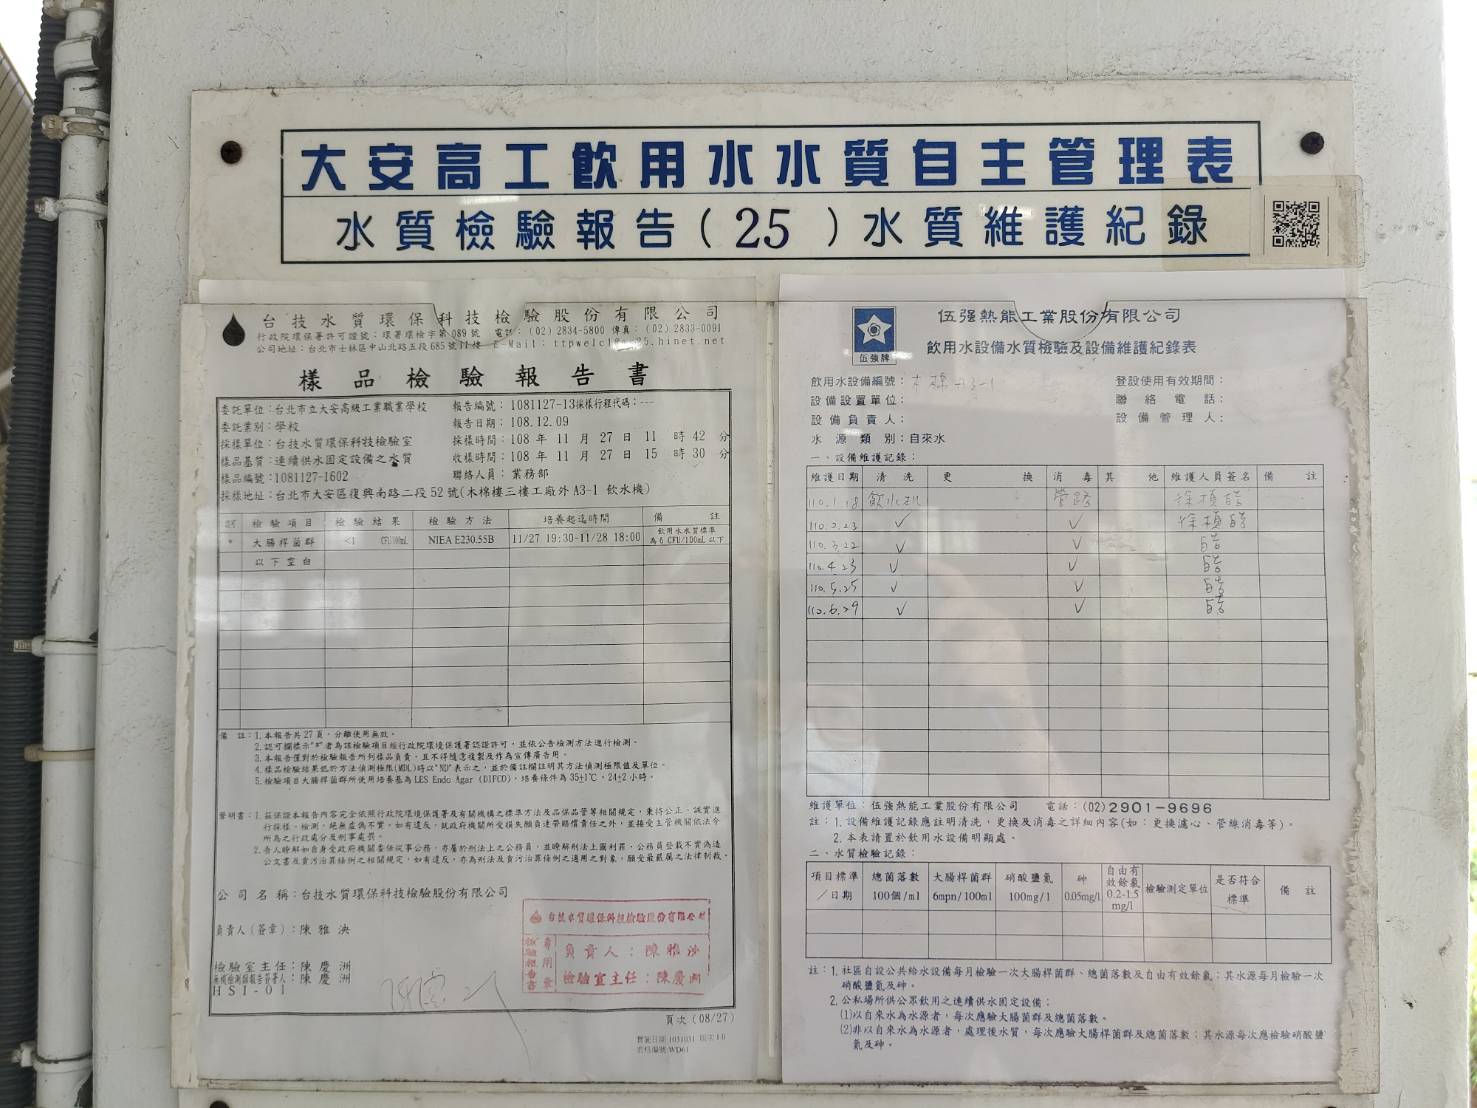 大安高工飲用水水質自主管理表
水質檢驗報告(25)水質維護紀錄
台技水質環保科技檢驗股份有限公司
行政院環保署許可證號：環署環檢字第089號 電話：(02)2834-5800 傳真：(02)2833-0091
公司地址：台北市士林區中山北路五段685號11樓 E-Mail：
樣品檢驗報告書
委託單位：台北市立大安高級工業職業學校 報告編號：1081127-13採樣行程代碼：---
委託業別：學校 報告日期：108.12.09
採樣單位：台技水質環保科技檢驗室 採樣時間：108年11月27日11時42分
樣品基質：連續供水固定設備之水質 收樣時間：108年11月27日15時30分
樣品編號：1081127-1602 聯絡人員：業務部
採樣地址：台北市大安區復興南路二段52號(木棉樓三樓工廠外A3-1 飲水機)
檢驗項目 檢驗結果 檢驗方法 培養起迄時間 備註
* 大腸桿菌群 <1 CFU/100mL NIEA E230.55B 11/27 19:30-11/28 18:00 飲用水水質標準為6 CFU/100mL以下
以下空白
備註：1.本報告共27頁，分離使用無效。
2.認可欄標示"*"者為該檢驗項目經行政院環境保護署認證許可，並依公告檢測方法進行檢測。
3.本報告僅對於檢驗報告所列樣品負責，且不得隨意複製及作為宣傳廣告用。
4.樣品檢驗結果低於方法偵測極限(MDL)時以"ND"表示之，並於備註欄註明其方法偵測極限值及單位。
5.檢驗項目大腸桿菌群所使用培養基為LES Endo Agar (DIFCO)，培養條件為35±1℃，24±2小時。
聲明書：1.茲保證本報告內容完全依照行政院環境保護署及有關機構之標準方法及品保品管等相關規定，秉持公正、誠實進
行採樣、檢測，絕無虛偽不實，如有違反，就政府機關所受損失願負連帶賠償責任之外，並接受主管機關依法令
所為之行政處分及刑事處罰。
2.吾人瞭解如自身受政府機關委任從事公務，亦屬於刑法上之公務員，並瞭解刑法上圖利罪、公務員登載不實偽造
公文書及貪污治罪條例之相關規定，如有違反，亦為刑法及貪污治罪條例之適用之對象，願受最嚴厲之法律制裁。
公司名稱：台技水質環保科技檢驗股份有限公司
負責人(簽章)：陳雅泱
檢驗室主任：陳慶洲
無機檢測類報告簽署人：陳慶洲
HSI-01
台技水質環保科技檢驗股份有限公司
檢驗報告書專用章
負責人：陳雅泱
檢驗室主任：陳慶洲
頁次(08/27)
伍強牌
伍强熱能工業股份有限公司
飲用水設備水質檢驗及設備維護紀錄表
飲用水設備編號： 登設使用有效期間：
設備設置單位： 聯絡電話：
設備負責人： 設備管理人：
水源類別：自來水
一、設備維護記錄：
維護日期 清洗 更換 消毒 其他 維護人員簽名 備註
110.1.18 飲水机 管路
110.2.23 ✓ ✓
110.3.22 ✓ ✓
110.4.23 ✓ ✓
110.5.25 ✓ ✓
110.6.29 ✓ ✓
維護單位：伍強熱能工業股份有限公司 電話：(02)2901-9696
註：1.設備維護記錄應註明清洗，更換及消毒之詳細內容(如：更換濾心、管線消毒等)。
2.本表請置於飲用水設備明顯處。
二、水質檢驗記錄：
項目標準/日期 總菌落數100個/ml 大腸桿菌群6mpn/100ml 硝酸鹽氮100mg/l 砷0.05mg/l 自由有效餘氯0.2-1.5mg/l 檢驗測定單位 是否符合標準 備註
註：1.社區自設公共給水設備每月檢驗一次大腸桿菌群、總菌落數及自由有效餘氯；其水源每月檢驗一次
硝酸鹽氮及砷。
2.公私場所供公眾飲用之連續供水固定設備：
(1)以自來水為水源者，每次應驗大腸菌群及總菌落數。
(2)非以自來水為水源者，處理後水質，每次應驗大腸桿菌群及總菌落數；其水源每次應檢驗硝酸鹽
氮及砷。